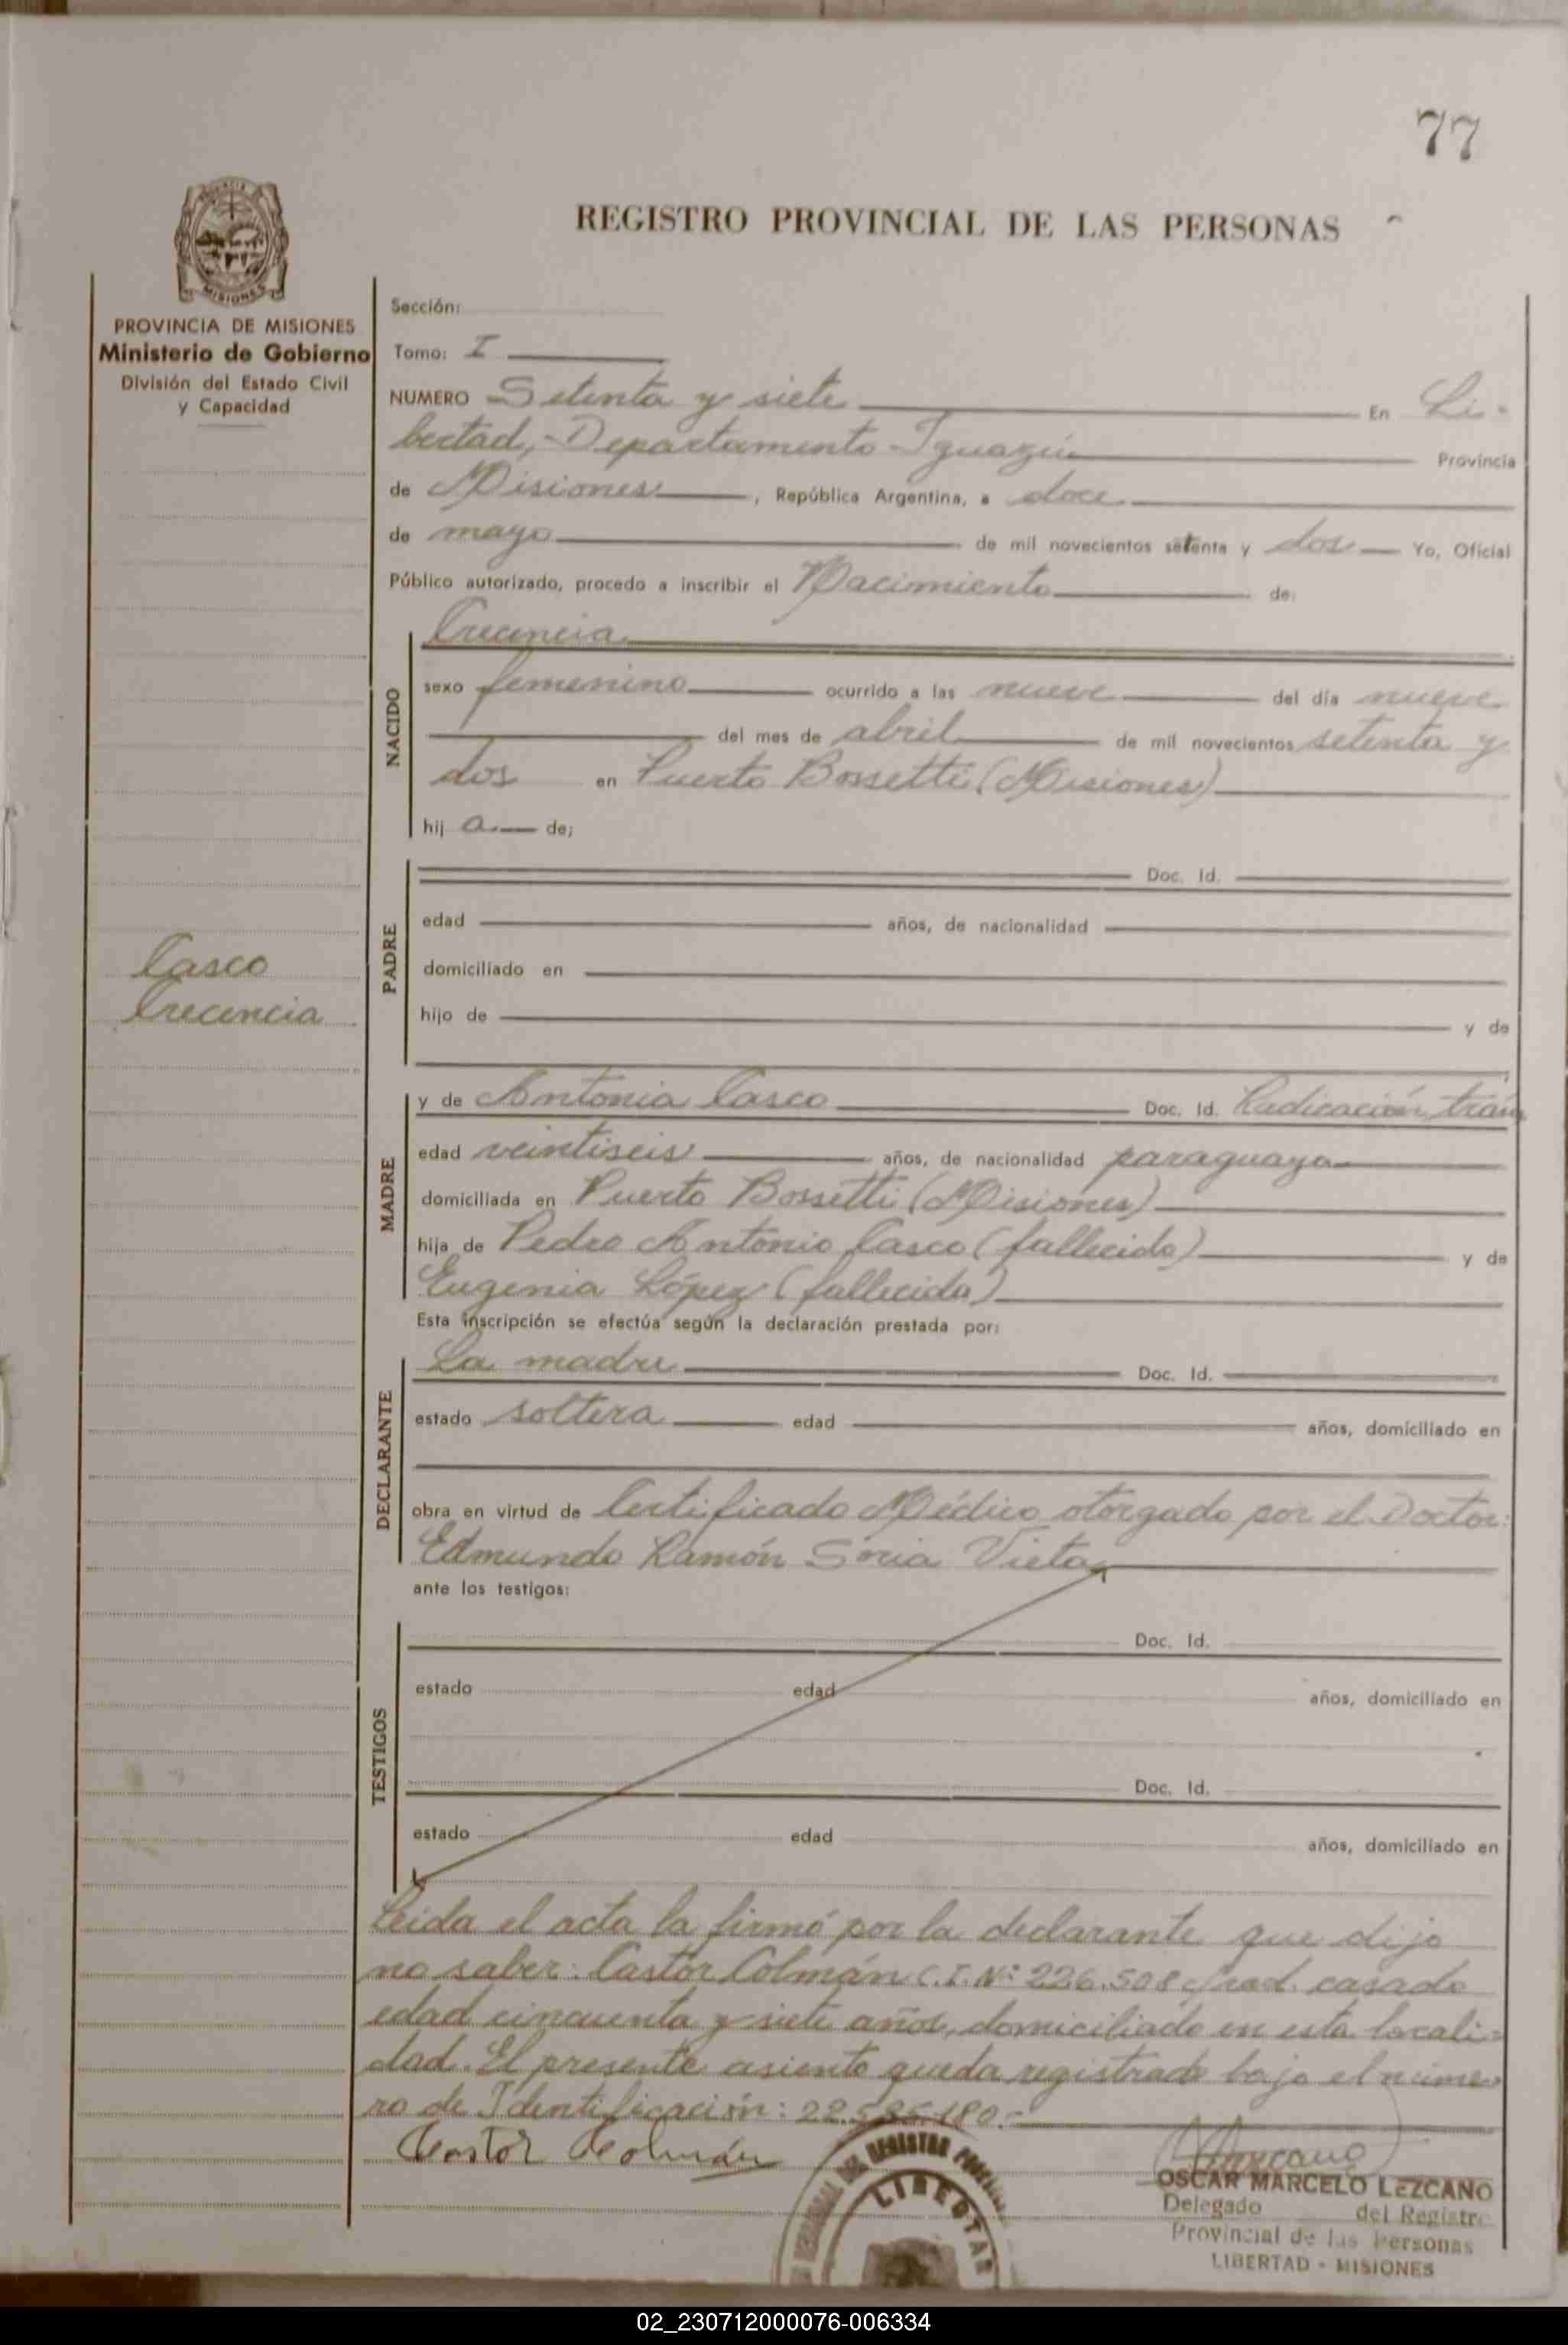 77
REGISTRO PROVINCIAL DE LAS PERSONAS
MISIONES
PROVINCIA DE MISIONES
Ministerio de Gobierno
División del Estado Civil
y Capacidad
Sección:
Tomo: I
NUMERO Setenta y siete En Li-
bertad,-Departamento-Iguazú Provincia
de Misiones, República Argentina, a doce
de mayo de mil novecientos setenta y dos Yo, Oficial
Público autorizado, procedo a inscribir el Nacimiento de:
NACIDO
Crecencia
sexo femenino ocurrido a las nueve del día nueve
del mes de abril de mil novecientos setenta y
dos en Puerto Bossetti (Misiones)
hij a de;
PADRE
Doc. Id.
edad años, de nacionalidad
domiciliado en
hijo de y de
Casco
Crecencia
MADRE
y de Antonia Casco Doc. Id. Radicación trám
edad veintiseis años, de nacionalidad paraguaya
domiciliada en Puerto Bossetti (Misiones)
hija de Pedro Antonio Casco (fallecido) y de
Eugenia López (fallecida)
Esta inscripción se efectúa según la declaración prestada por:
DECLARANTE
La madre Doc. Id.
estado soltera edad años, domiciliado en
obra en virtud de Certificado Médico otorgado por el Doctor:
Edmundo Ramón Soria Vieta
ante los testigos:
TESTIGOS
Doc. Id.
estado edad años, domiciliado en
Doc. Id.
estado edad años, domiciliado en
Leida el acta la firmó por la declarante que dijo
no saber: Castor Colmán C.I. Nº 226.508 casado
edad cincuenta y siete años, domiciliado en esta locali-
dad. El presente asiento queda registrado bajo el núme-
ro de Identificación: 22.535.180.-
Castor Colmán
REGISTRO
LIBERTAD
OSCAR MARCELO LEZCANO
Delegado del Registro
Provincial de las Personas
LIBERTAD - MISIONES
02_230712000076-006334